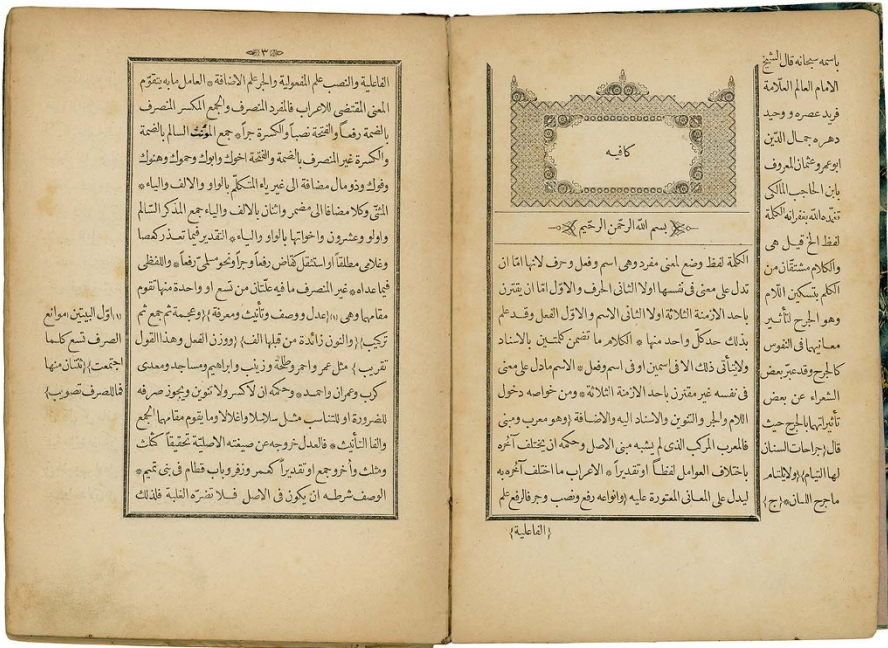 كافيه
بسم الله الرحمن الرحيم
الكلمة لفظ وضع لمعنى مفرد وهى اسم وفعل وحرف لانها امّا ان
تدل على معنى فى نفسها اولا الثانى الحرف والاوّل امّا ان يقترن
باحد الازمنة الثلاثة اولا الثانى الاسم والاوّل الفعل وقد علم
بذلك حد كلّ واحد منها * الكلام ما تضمن كلمتين بالاسناد
ولا يتأتى ذلك الا فى اسمين او فى اسم وفعل * الاسم مادل على معنى
فى نفسه غير مقترن باحد الازمنة الثلاثة * ومن خواصه دخول
اللام والجر والتنوين والاسناد اليه والاضافة {وهو معرب ومبنى
فالمعرب المركب الذى لم يشبه مبنى الاصل وحكمه ان يختلف آخره
باختلاف العوامل لفظاً او تقديراً * الاعراب ما اختلف آخره به
ليدل على المعانى المعتورة عليه {وانواعه رفع ونصب وجر فالرفع علم
{الفاعلية}
باسمه سبحانه قال الشيخ
الامام العالم العلّامة
فريد عصره و وحيد
دهره جمال الدّين
ابو عمرو عثمان المعروف
بابن الحاجب المالكى
تغمّده الله بغفرانه الكلمة
لفظ الخ قيل هى
والكلام مشتقّان من
الكلم بتسكين اللام
وهو الجرح لتأثير
معانيهما فى النفوس
كالجرح وقد عبّر بعض
الشعراء عن بعض
تأثيراتهما بالجرح حيث
قال {جراحات السنان
لها التيام} {ولا يلتام
ما جرح اللسان * {ج}
٣
الفاعلية والنصب علم المفعولية والجر علم الاضافة * العامل ما به يتقوّم
المعنى المقتضى للاعراب فالمفرد المنصرف والجمع المكسر المنصرف
بالضمة رفعاً والفتحة نصباً والكسرة جراً * جمع المؤنث السالم بالضمة
والكسرة غير المنصرف بالضمة والفتحة اخوك وابوك وحموك وهنوك
وفوك وذو مال مضافة الى غير ياء المتكلّم بالواو والالف والياء *
المثنّى وكلا مضافا الى مضمر واثنان بالالف والياء جمع المذكر السّالم
واولو وعشرون واخواتها بالواو والياء * التقدير فيما تعذر كعصا
وغلامى مطلقاً او استثقل كقاض رفعاً وجراً ونحو مسلمىّ رفعاً * واللفظى
فيما عداه * غير المنصرف ما فيه علّتان من تسع او واحدة منها تقوم
مقامهما وهى (١) {عدل ووصف وتأنيث ومعرفة} {وعجمة ثم جمع ثم
تركيب} {والنون زائدة من قبلها الف} {ووزن الفعل وهذا القول
تقريب} مثل عمر واحمر وطلحة وزينب وابراهيم ومساجد ومعدى
كرب وعمران واحمد * وحكمه ان لا كسر ولا تنوين ويجوز صرفه
للضرورة او للتناسب مثل سلاسلا واغلالا وما يقوم مقامهما الجمع
والفا التأنيث * فالعدل خروجه عن صيغته الاصليّة تحقيقاً كثلث
ومثلث وأخر وجمع او تقديراً كعمر وزفر وباب قطام فى بنى تميم *
الوصف شرطه ان يكون فى الاصل فلا تضرّه الغلبة فلذلك
(١) اوّل البيتين {موانع
الصرف تسع كلما
اجتمعت} {ثنتان منها
فما للصرف تصويب}